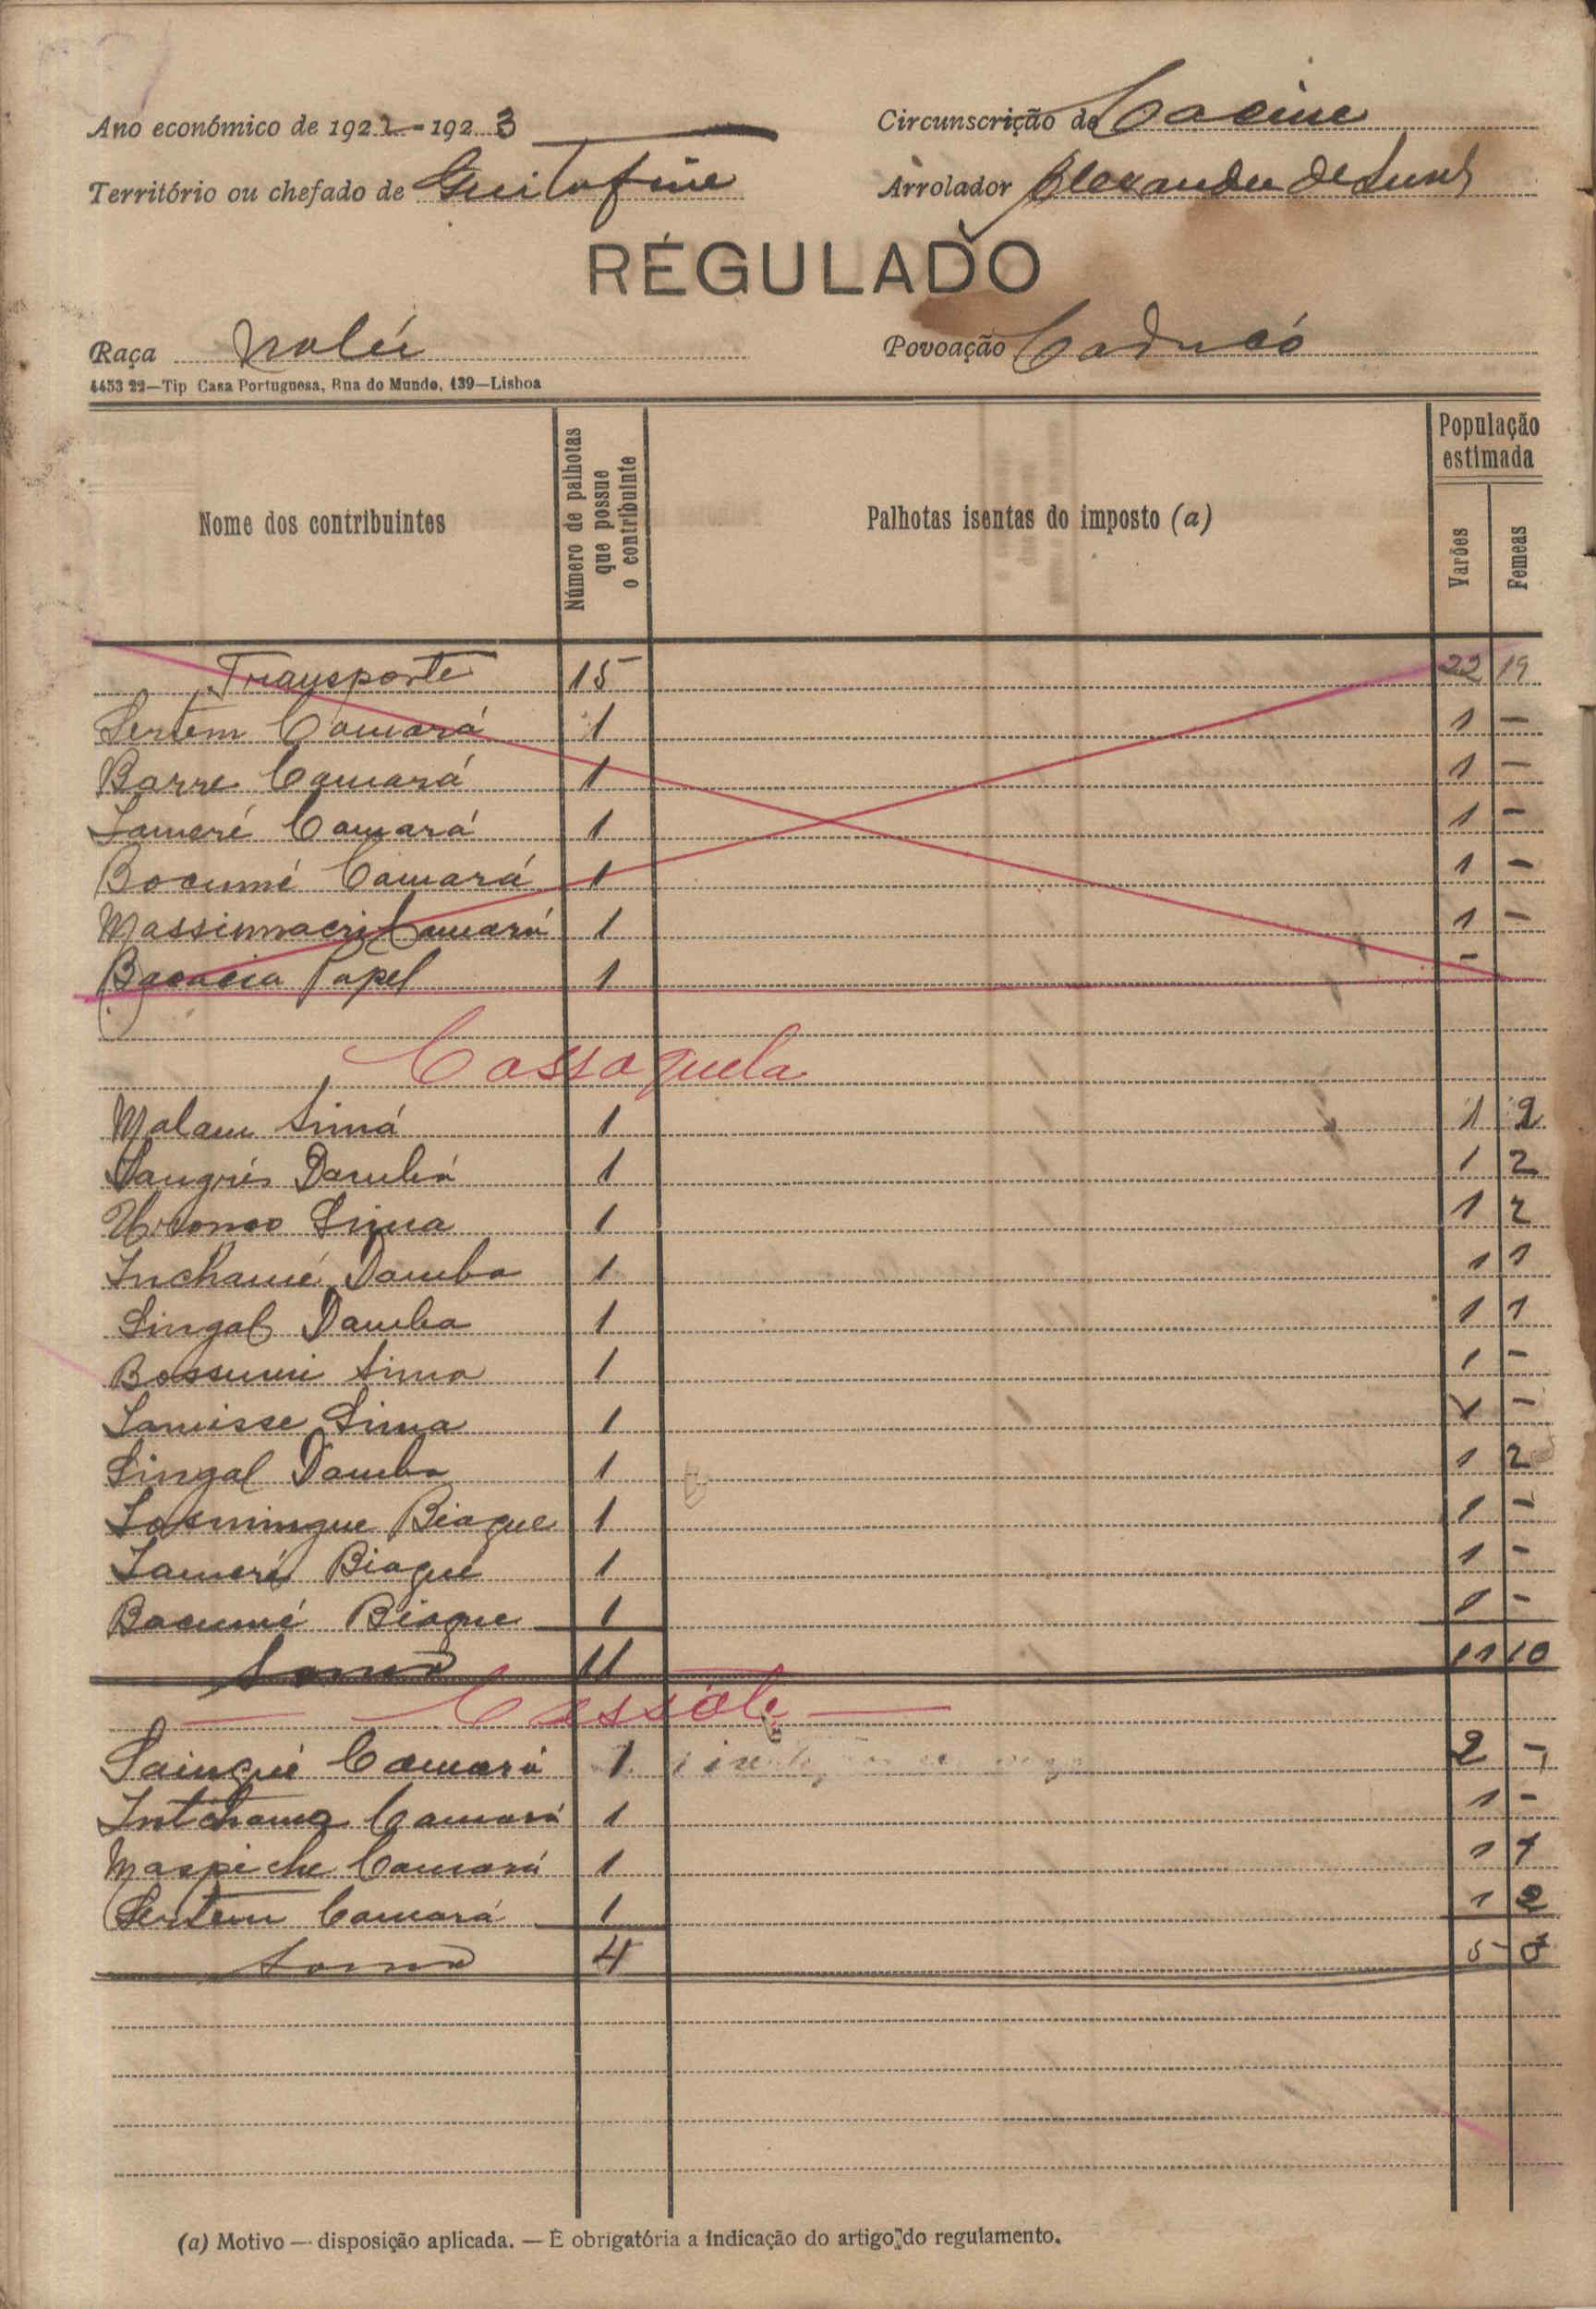 Ano económico de 1922-1923
Circunscrição de Cacine
Território ou chefado de Guitafine
Arrolador Alexandre de
RÉGULADO
Raça Nalú
Povoação Caducó
4453 22—Tip Casa Portuguesa, Rua do Mundo, 139—Lisboa
Nome dos contribuintes
Número de palhotas que possue o contribuinte
Palhotas isentas do imposto (a)
População estimada
Varões
Femeas
Transporte 15 22 19
Sertem Camará 1 1 —
Barre Camará 1 1 —
Lameré Camará 1 1 —
Bocumé Camará 1 1 —
Massinmacri Camará 1 1 —
Papel 1 —
Cassaquela
Malam Simá 1 1 2
Dambá 1 1 2
Sima 1 1 2
Inchamé Damba 1 1 1
Singal Damba 1 1 1
Bossumi Sima 1 1 —
Lamisse Sima 1 1 —
Singal Damba 1 1 2
Biaque 1 1 —
Lameré Biaque 1 1 —
Bacumé Biaque 1 1 —
Soma 11 11 10
— Cassole —
Camará 1 2 —
Intchama Camará 1 1 —
Maspiche Camará 1 1 1
Sertem Camará 1 1 2
Soma 4 5 3
(a) Motivo — disposição aplicada. — É obrigatória a indicação do artigo do regulamento.